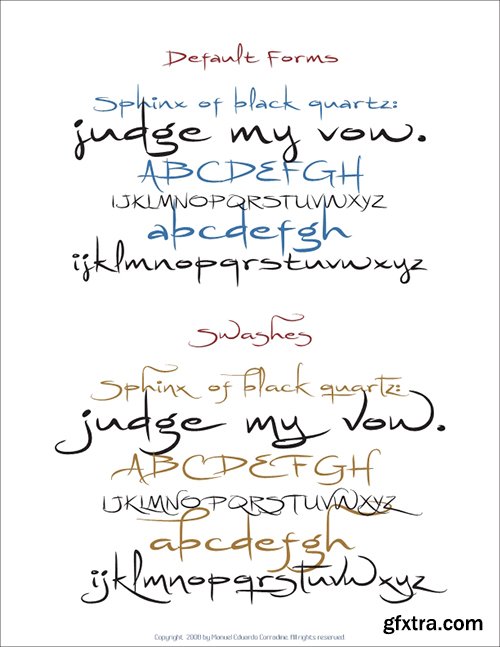 Default Forms
Sphinx of black quartz:
judge my vow.
ABCDEFGH
IJKLMNOPQRSTUVWXYZ
abcdefgh
ijklmnopqrstuvwxyz
Swashes
Sphinx of black quartz:
judge my vow.
ABCDEFGH
IJKLMNOPQRSTUVWXYZ
abcdefgh
ijklmnopqrstuvwxyz
Copyright 2008 by Manuel Eduardo Corradine. All rights reserved.
gfxtra.com